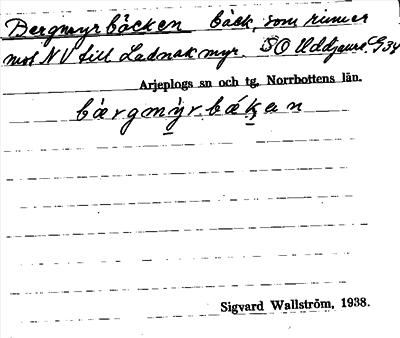 Bergmyrbäcken bäck, som rinner
mot NV till Ladnakmyr. SO Uddjaure. G34
Arjeplogs sn och tg, Norrbottens län.
bærgmýrbækən
Sigvard Wallström, 1938.